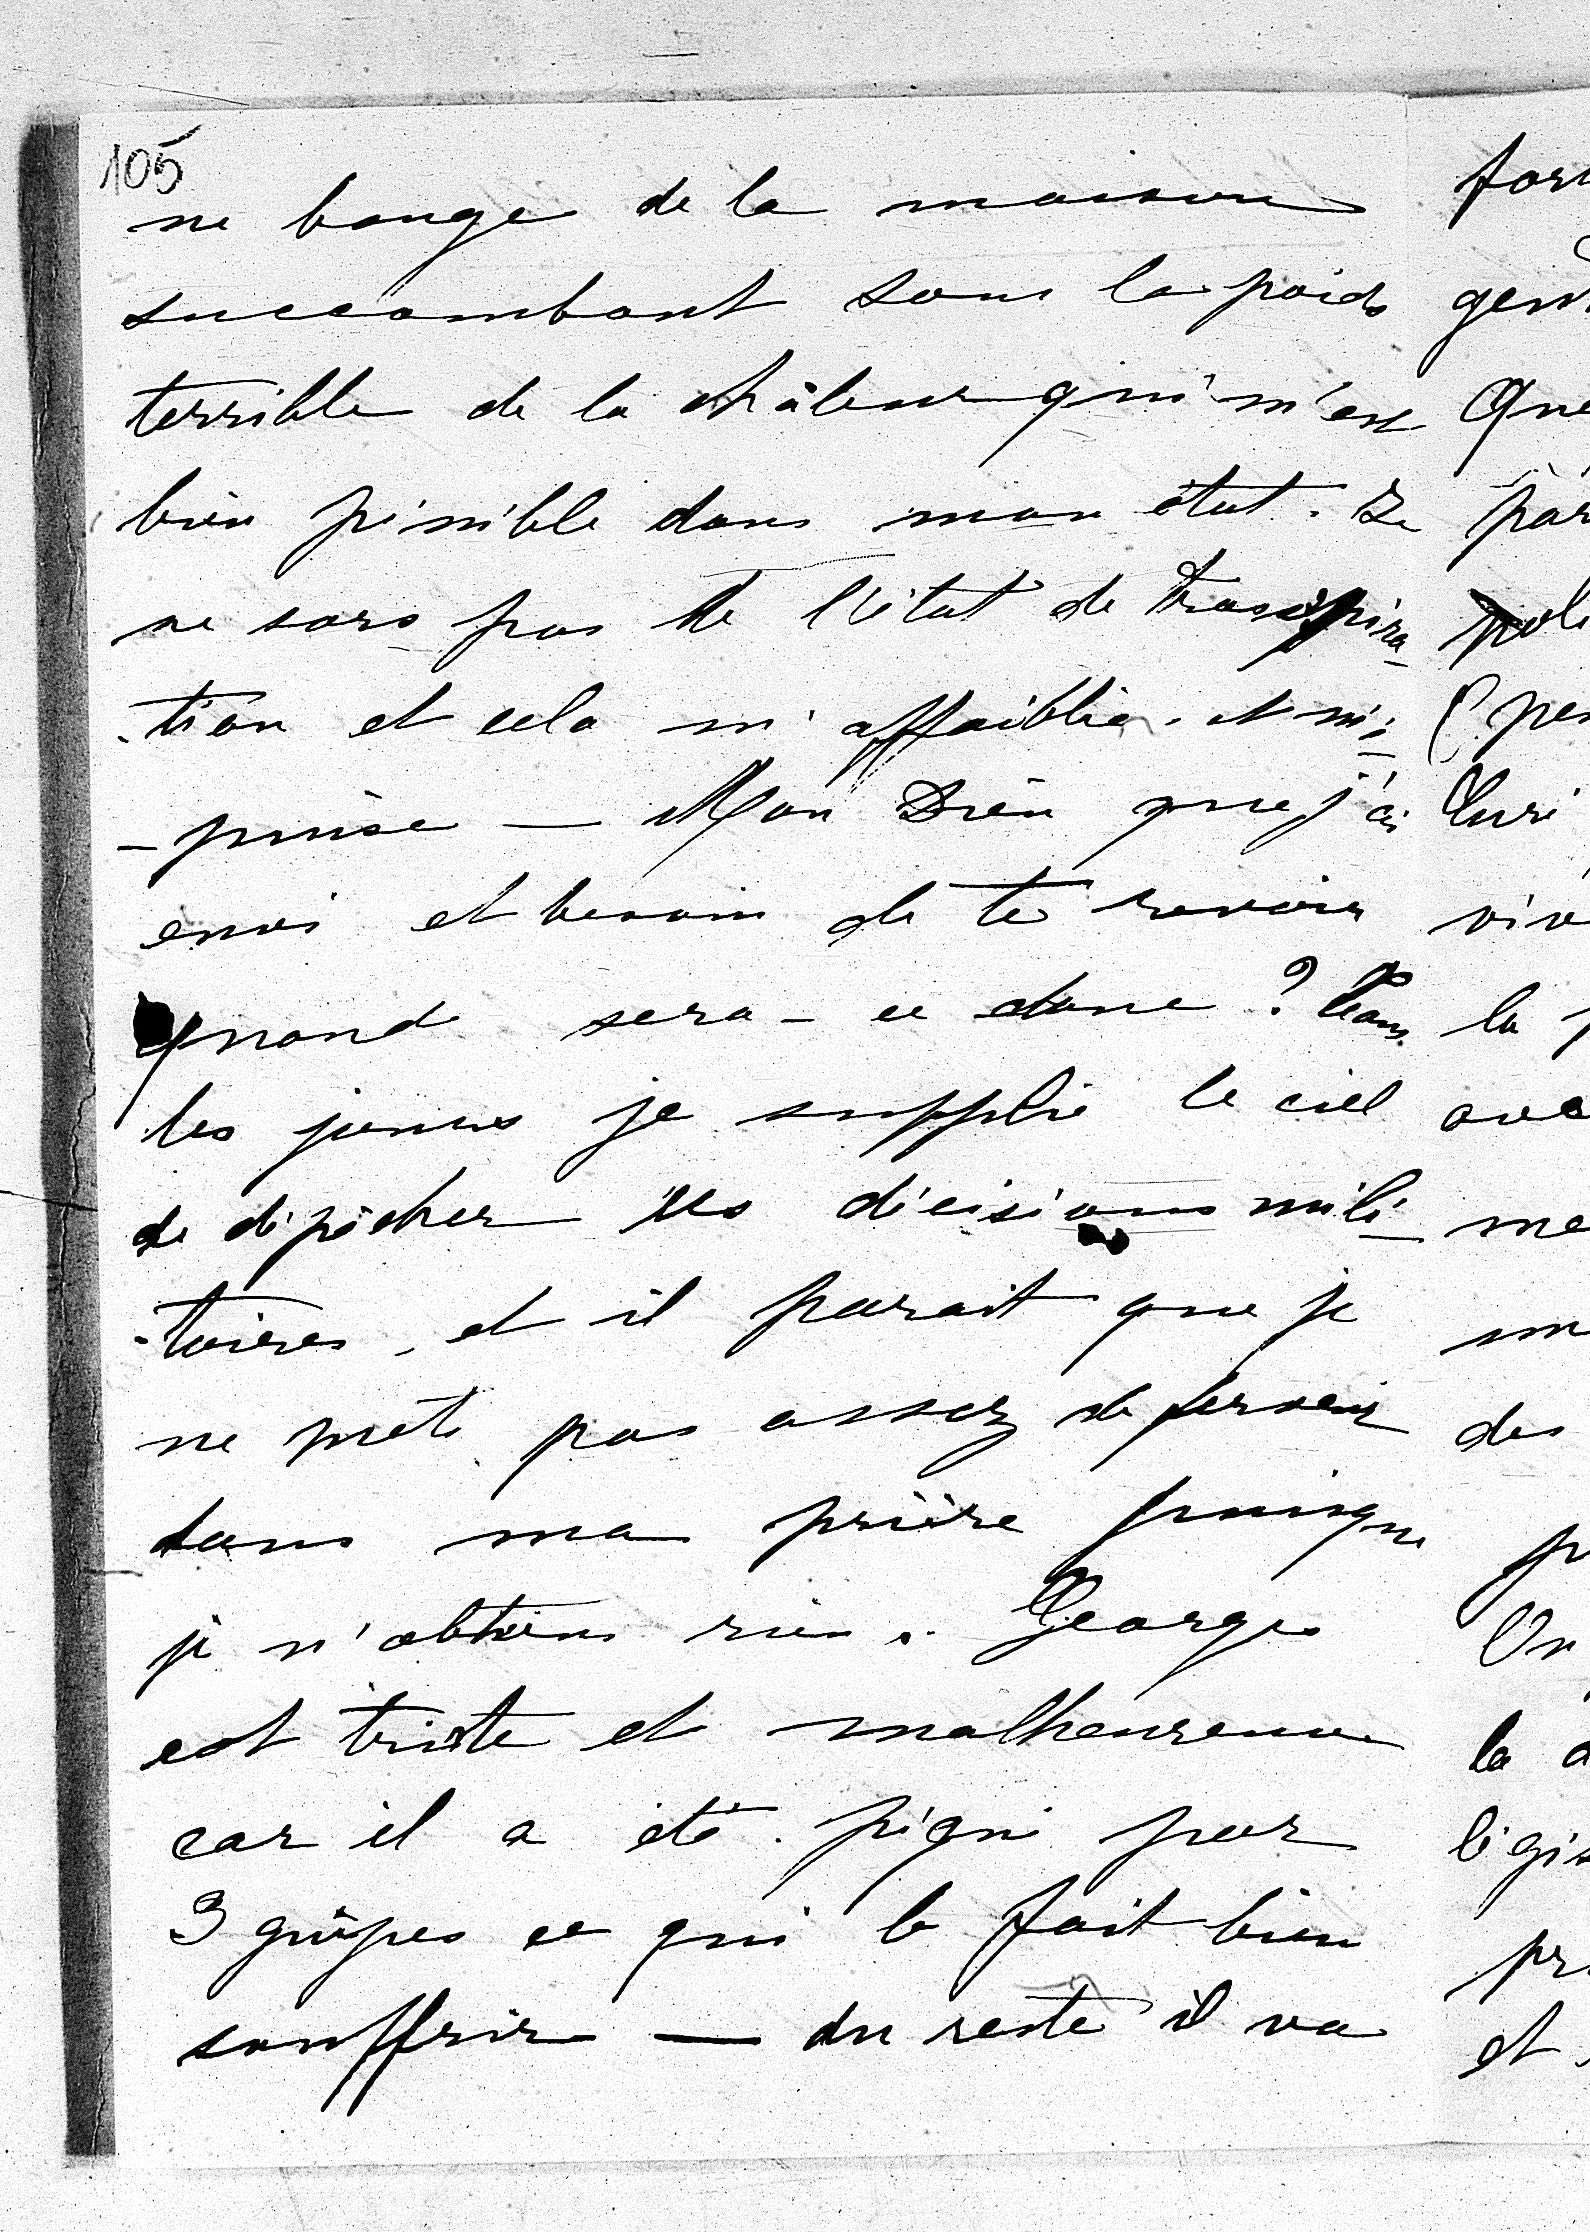 105
ne bouge de la maison
succombant sous le poids
terrible de la châleur qui m'est
bien pénible dans mon état. Je
ne sors pas de l'état de transpira-
-tion et cela m'affaiblie. et m'é-
-puise — Mon Dieu que j'ai
envi et besoin de te revoir
quand sera-ce donc ? Tous
les jours je supplie le ciel
de dépêcher les décisions mili-
-taires, et il parait que je
ne mets pas assez de ferveur
dans ma prière puisque
je n'obtiens rien. Georges
est triste et malheureux
car il a été piqué par
3 guêpes ce qui le fait bien
souffrir — du reste il va
la
des
la
et